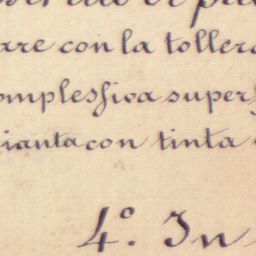 are con la toller
omplessiva super
ianta con tinta
4º. In